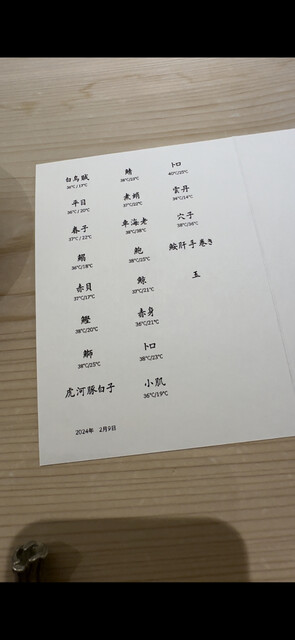 白烏賊
36℃/17℃
平目
36℃/20℃
春子
37℃/22℃
鰯
36℃/18℃
赤貝
37℃/17℃
鰹
38℃/20℃
鰤
38℃/25℃
虎河豚白子
鯖
38℃/19℃
煮蛤
37℃/22℃
車海老
38℃/38℃
鮑
38℃/25℃
鯨
37℃/21℃
赤身
36℃/21℃
トロ
38℃/23℃
小肌
36℃/19℃
トロ
40℃/25℃
雲丹
34℃/14℃
穴子
38℃/36℃
鮟肝手巻き
玉
2024年 2月9日